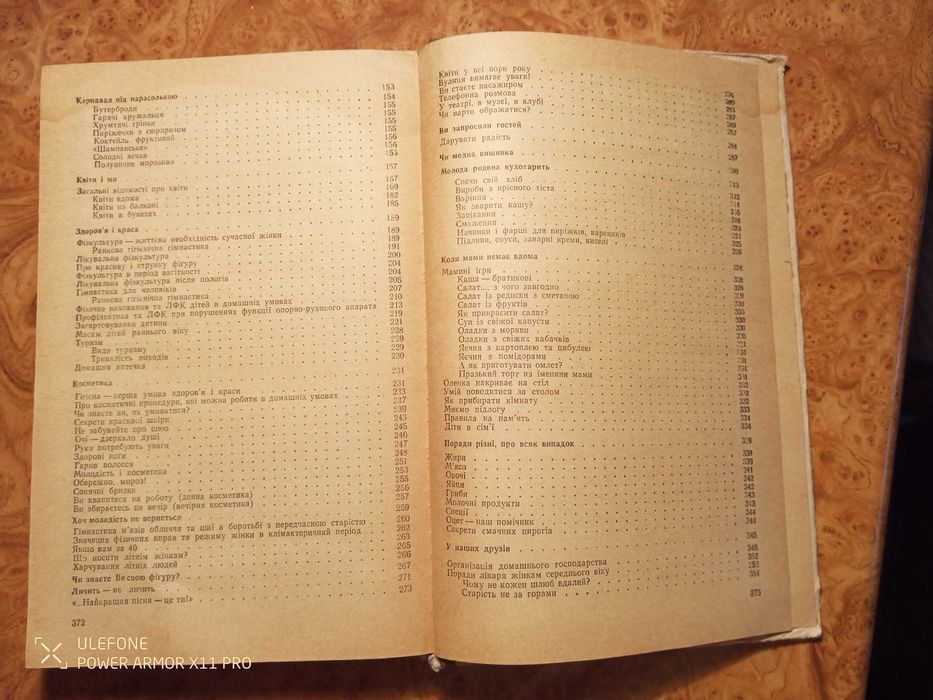 Карнавал під парасолькою
Бутерброди
Гарячі кружальця
Хрумтячі грінки
Пиріжечки з сюрпризом
Коктейль фруктовий
«Шампанське»
Солодкі яєчка
Полуничне морозиво
Квіти і ми
Загальні відомості про квіти
Квіти вдома
Квіти на балконі
Квіти в букетах
Здоров'я і краса
Фізкультура — життєва необхідність сучасної жінки
Ранкова гігієнічна гімнастика
Лікувальна фізкультура
Про красиву і струнку фігуру
Фізкультура в період вагітності
Лікувальна фізкультура після пологів
Гімнастика для чоловіків
Ранкова гігієнічна гімнастика
Фізичне виховання та ЛФК дітей в домашніх умовах
Профілактика та ЛФК при порушеннях функції опорно-рухового апарата
Загартовування дитини
Масаж дітей раннього віку
Туризм
Види туризму
Тривалість походів
Домашня аптечка
Косметика
Гігієна — перша умова здоров'я і краси
Про косметичні процедури, які можна робити в домашніх умовах
Чи знаєте ви, як умиватися?
Секрети красивої шкіри
Не забувайте про шию
Очі — дзеркало душі
Руки потребують уваги
Здорові ноги
Гарне волосся
Молодість і косметика
Обережно, мороз!
Сонячні бризки
Ви квапитеся на роботу (денна косметика)
Ви збираєтесь на вечір (вечірня косметика)
Хоч молодість не вернеться
Гімнастика м'язів обличчя та шиї в боротьбі з передчасною старістю
Значення фізичних вправ та режиму жінки в клімактеричний період
Якщо вам за 40
Що носити літнім жінкам?
Харчування літніх людей
Чи знаєте Ви свою фігуру?
Личить — не личить
«...Найкращая пісня — це ти!»
153
154
155
155
155
155
156
156
155
157
157
169
182
185
189
189
189
191
200
204
204
206
207
210
213
219
221
228
229
229
230
231
231
233
237
239
243
245
246
247
248
251
253
255
256
257
259
260
262
263
265
266
267
271
273
372
Квіти у всі пори року
Вулиця вимагає уваги!
Ви стаєте пасажиром
Телефонна розмова
У театрі, в музеї, в клубі
Чи варто ображатися?
Ви запросили гостей
Дарувати радість
Чи модна вишивка
Молода родина куховарить
Спечи свій хліб
Вироби з прісного тіста
Варіння
Як зварити кашу?
Запікання
Смаження
Начинки і фарші для пиріжків, вареників
Підливи, соуси, заварні креми, киселі
Коли мами немає вдома
Мамині ігри
Каша — братикові
Салат... з чого завгодно
Салат із редиски з сметаною
Салат із фруктів
Як прикрасити салат?
Суп із свіжої капусти
Оладки з моркви
Оладки з свіжих кабачків
Яєчня з картоплею та цибулею
Яєчня з помідорами
А як приготувати омлет?
Празький торт на іменини мами
Оленка накриває на стіл
Умій поводитися за столом
Як прибирати кімнату
Миємо підлогу
Правила на пам'ять
Діти в сім'ї
Поради різні, про всяк випадок
Жири
М'ясо
Овочі
Яйця
Гриби
Молочні продукти
Спеції
Оцет — наш помічник
Секрети смачних пирогів
У наших друзів
Організація домашнього господарства
Поради лікаря жінкам середнього віку
Чому не кожен шлюб вдалий?
Старість не за горами
289
292
294
313
316
318
328
328
329
330
330
330
331
331
331
332
332
333
334
334
339
339
341
342
342
343
343
344
344
345
346
352
352
354
373
ULEFONE
POWER ARMOR X11 PRO